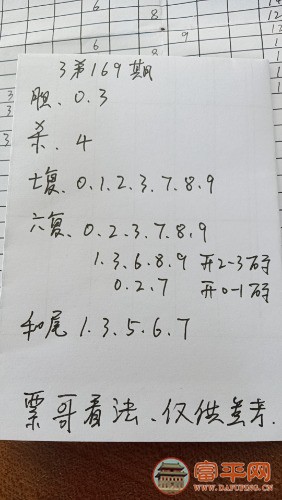 6
8
9
6
8
3弟169期
胆、0.3
杀、4
七复、0.1.2.3.7.8.9
六复、0.2.3.7.8.9
1.3.6.8.9 开2-3码
0.2.7 开0-1码
和尾 1.3.5.6.7
票哥看法、仅供参考.
富平网
WWW.DAFUPING.CN